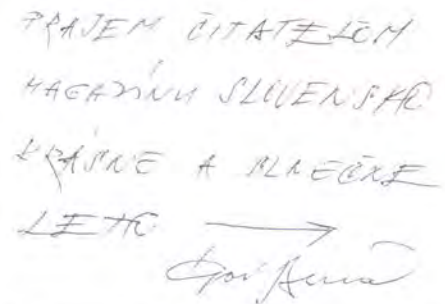 PRAJEM ČITATEĽOM
MAGAZÍNU SLOVENSKO
KRÁSNE A SLNEČNÉ
LETO